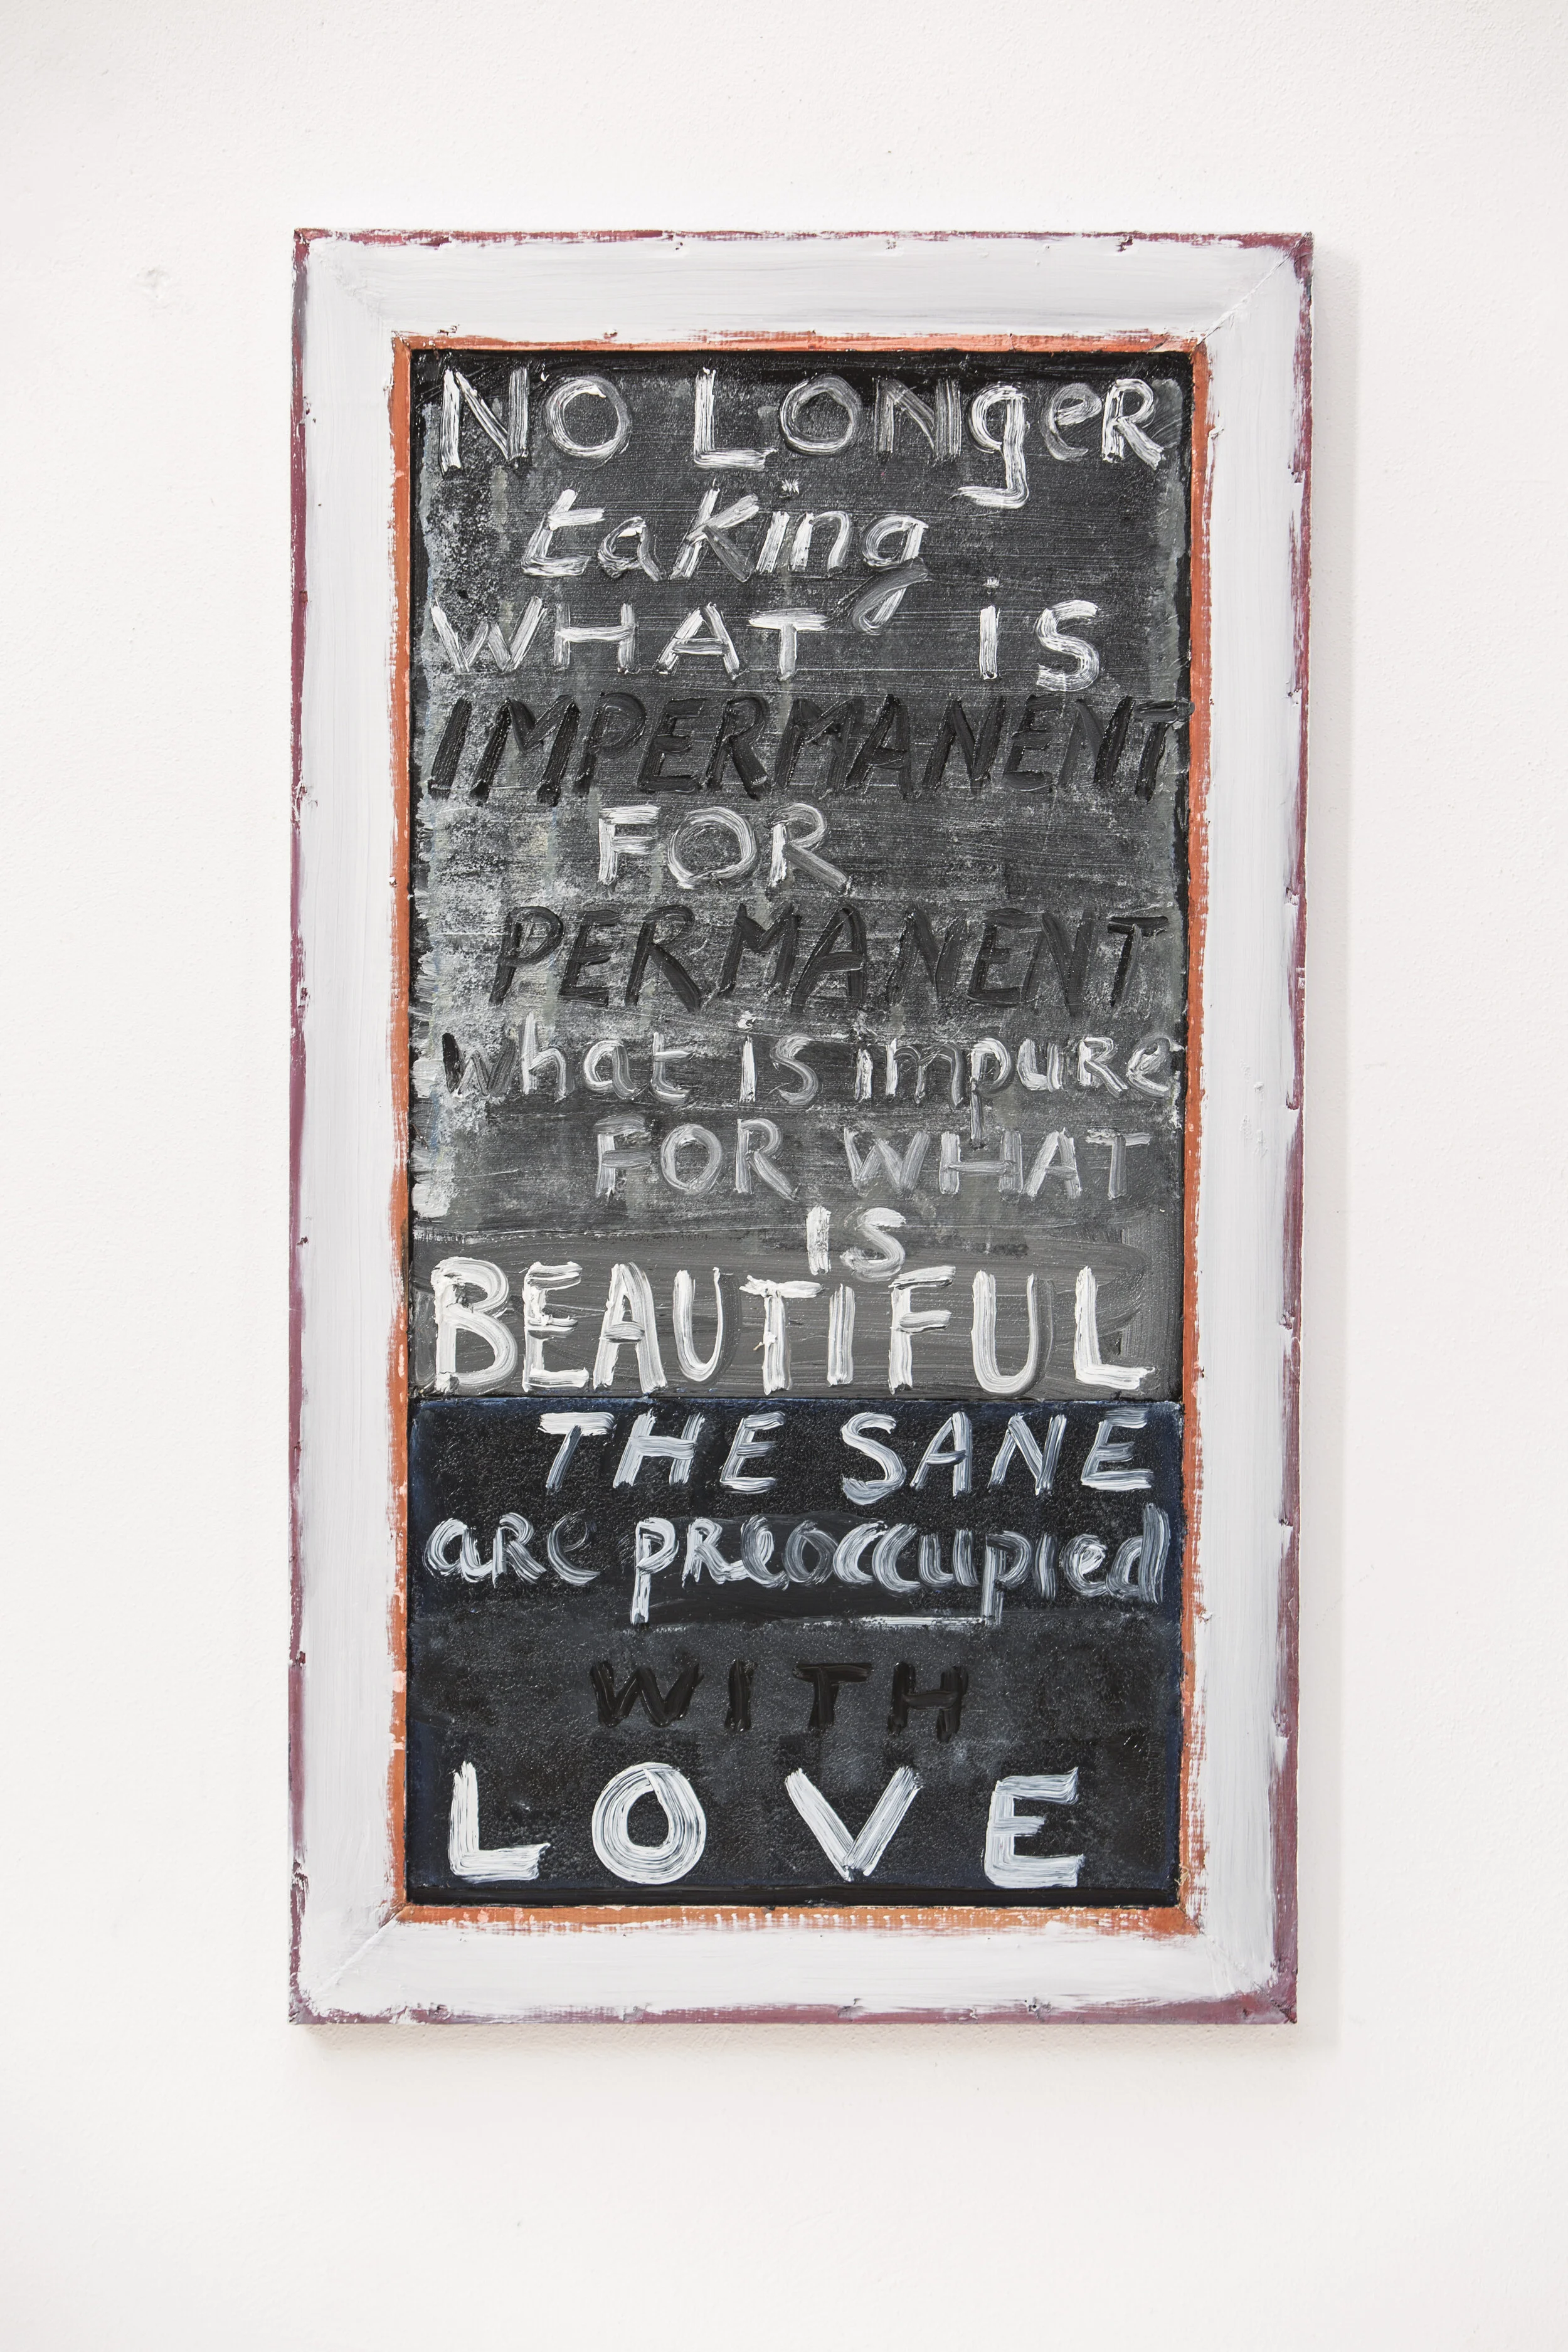 NO LONgeR
taking
WHAT IS
IMPERMANENT
FOR
PERMANENT
what is impuRe
FOR WHAT
IS
BEAUTIFUL
THE SANE
aRe pReoccupied
WITH
LOVE